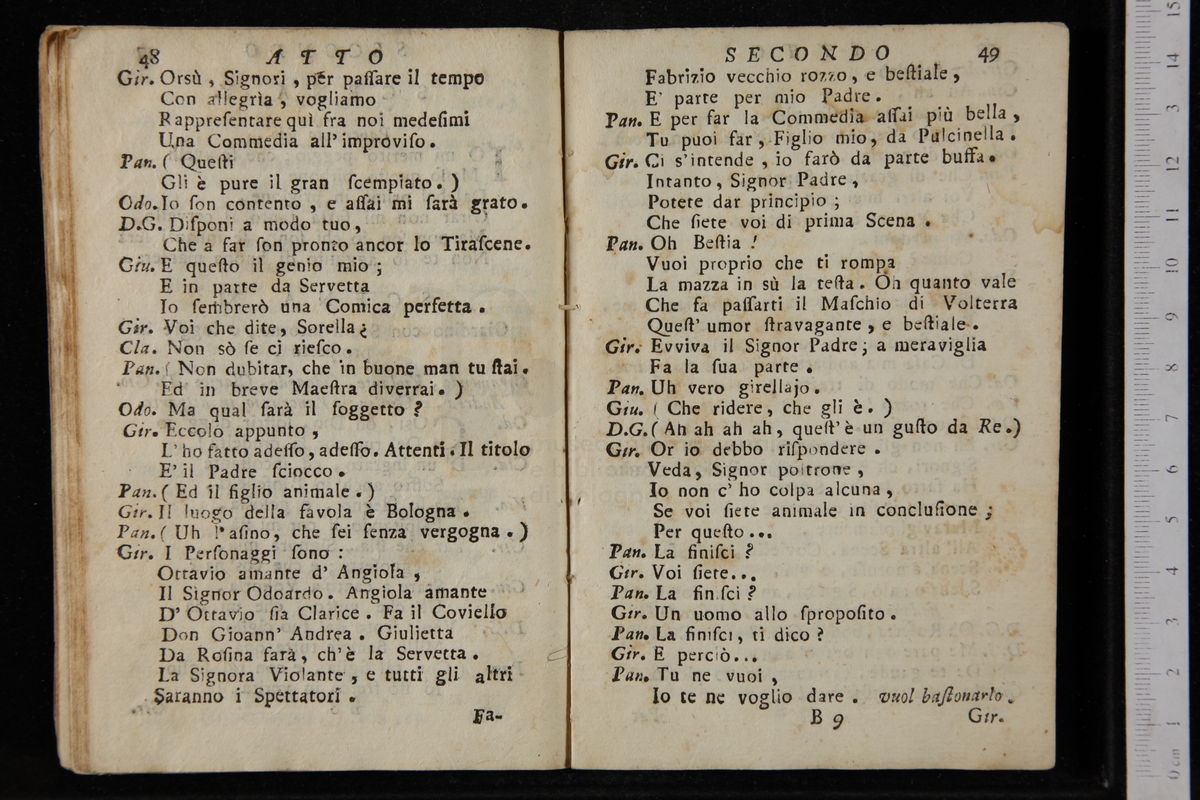 48 ATTO
Gir. Orsù, Signori, per paſſare il tempo
Con allegria, vogliamo
Rappreſentare quì fra noi medeſimi
Una Commedia all' improviſo.
Pan. ( Queſti
Gli è pure il gran ſcempiato. )
Odo. Io ſon contento, e aſſai mi ſarà grato.
D.G. Diſponi a modo tuo,
Che a far ſon pronto ancor lo Tiraſcene.
Giu. E queſto il genio mio;
E in parte da Servetta
Io ſembrerò una Comica perfetta.
Gir. Voi che dite, Sorella¿
Cla. Non sò ſe ci rieſco.
Pan. ( Non dubitar, che in buone man tu ſtai.
Ed in breve Maeſtra diverrai. )
Odo. Ma qual ſarà il ſoggetto ?
Gir. Eccolo appunto,
L' ho fatto adeſſo, adeſſo. Attenti. Il titolo
E' il Padre ſciocco.
Pan. ( Ed il figlio animale. )
Gir. Il luogo della favola è Bologna.
Pan. ( Uh l'aſino, che ſei ſenza vergogna. )
Gir. I Perſonaggi ſono :
Ottavio amante d' Angiola,
Il Signor Odoardo. Angiola amante
D' Ottavio ſia Clarice. Fa il Coviello
Don Gioann' Andrea. Giulietta
Da Roſina farà, ch'è la Servetta.
La Signora Violante, e tutti gli altri
Saranno i Spettatori.
Fa-
SECONDO 49
Fabrizio vecchio rozzo, e beſtiale,
E' parte per mio Padre.
Pan. E per far la Commedia aſſai più bella,
Tu puoi far, Figlio mio, da Pulcinella.
Gir. Ci s'intende, io farò da parte buffa.
Intanto, Signor Padre,
Potete dar principio;
Che ſiete voi di prima Scena.
Pan. Oh Beſtia !
Vuoi proprio che ti rompa
La mazza in sù la teſta. Oh quanto vale
Che fa paſſarti il Maſchio di Volterra
Queſt' umor ſtravagante, e beſtiale.
Gir. Evviva il Signor Padre; a meraviglia
Fa la ſua parte.
Pan. Uh vero girellajo.
Giu. ( Che ridere, che gli è. )
D.G. ( Ah ah ah ah, queſt'è un guſto da Re. )
Gir. Or io debbo riſpondere.
Veda, Signor poitrone,
Io non c' ho colpa alcuna,
Se voi ſiete animale in concluſione;
Per queſto...
Pan. La finiſci ?
Gir. Voi ſiete...
Pan. La finiſci ?
Gir. Un uomo allo ſpropoſito.
Pan. La finiſci, ti dico ?
Gir. E perciò...
Pan. Tu ne vuoi,
Io te ne voglio dare. vuol baſtonarlo.
B 9 Gir.